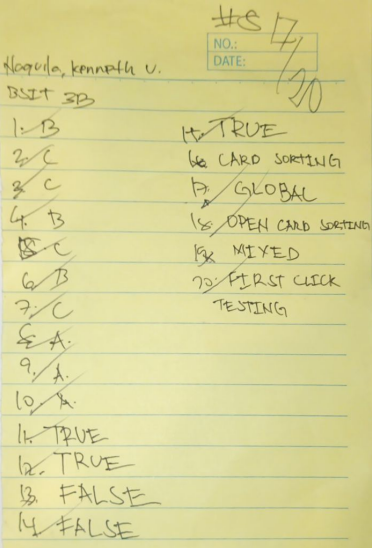 #8 17/20
NO.:
DATE:
Naquila, Kenneth V.
BSIT 3B
1. B
2. C
3. C
4. B
5. C
6. B
7. C
8. A.
9. A.
10. A.
11. TRUE
12. TRUE
13. FALSE
14. FALSE
15. TRUE
16. CARD SORTING
17. GLOBAL
18. OPEN CARD SORTING
19. MIXED
20. FIRST CLICK
TESTING